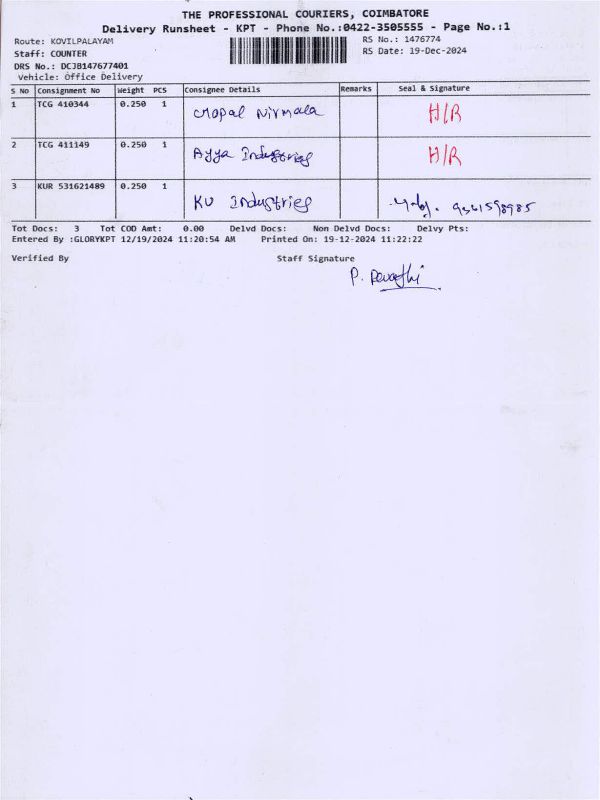 THE PROFESSIONAL COURIERS, COIMBATORE
Delivery Runsheet - KPT - Phone No.:0422-3505555 - Page No.:1
Route: KOVILPALAYAM RS No.: 1476774
Staff: COUNTER RS Date: 19-Dec-2024
DRS No.: DCJB147677401
Vehicle: Office Delivery
S No Consignment No Weight PCS Consignee Details Remarks Seal & Signature
1 TCG 410344 0.250 1 Gopal Nirmala H/R
2 TCG 411149 0.250 1 Ayya Industries H/R
3 KUR 531621489 0.250 1 KU Industries
Tot Docs: 3 Tot COD Amt: 0.00 Delvd Docs: Non Delvd Docs: Delvy Pts:
Entered By :GLORYKPT 12/19/2024 11:20:54 AM Printed On: 19-12-2024 11:22:22
Verified By Staff Signature
P. Revathi